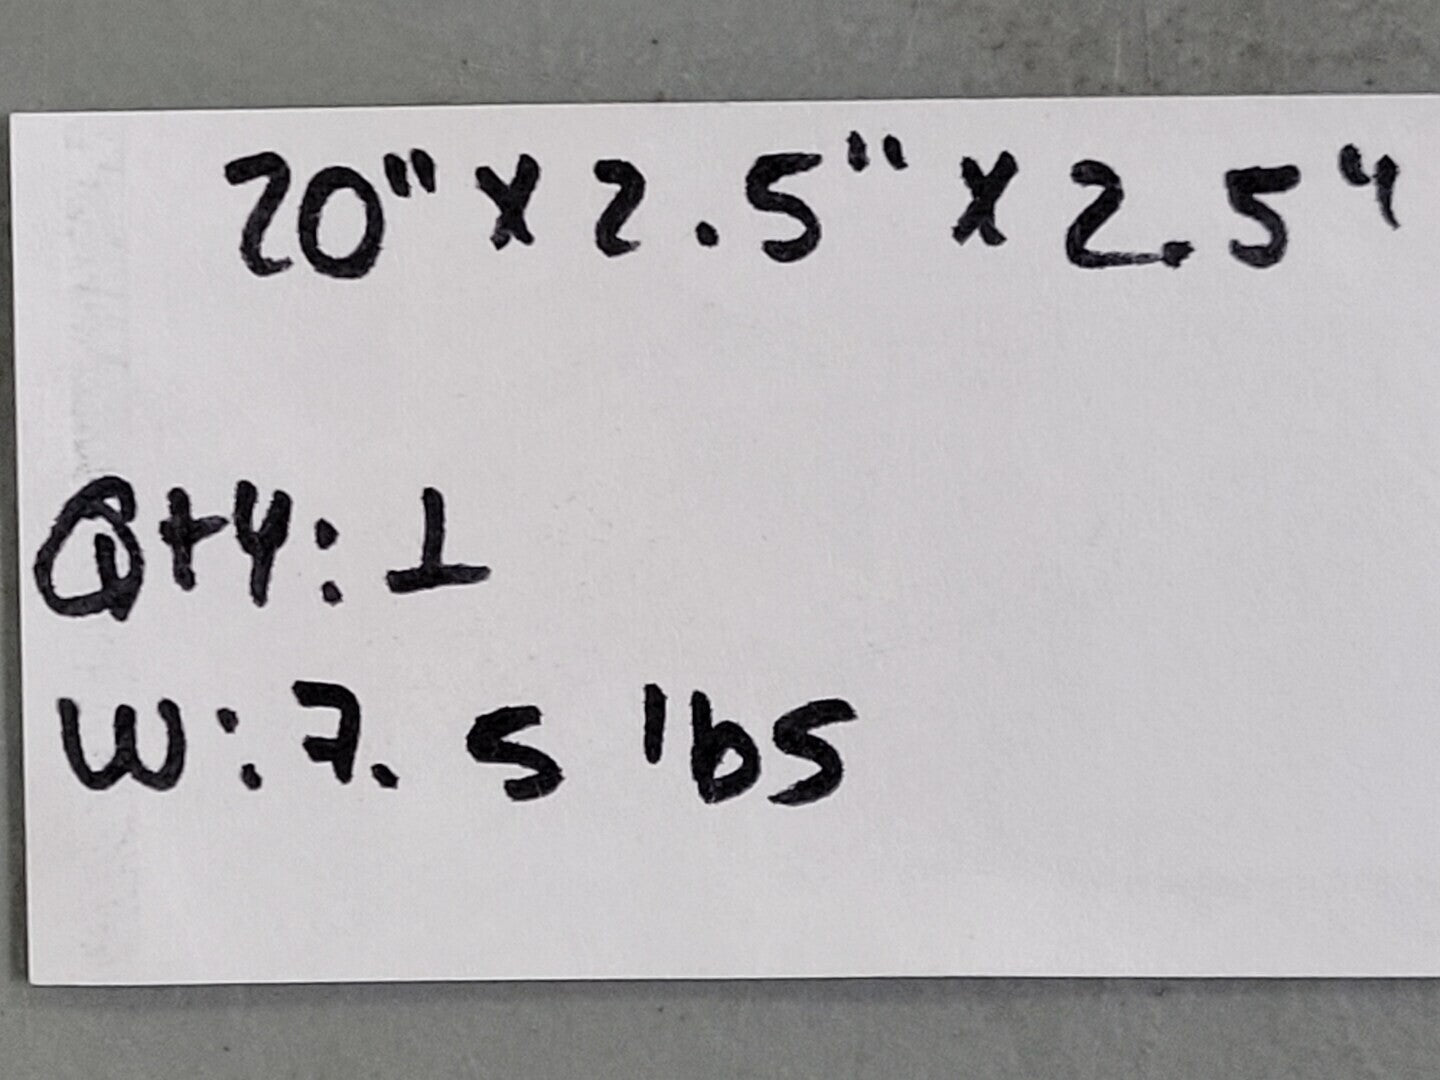 20" x 2.5" x 2.5"
Qty: 1
W: 7.5 lbs